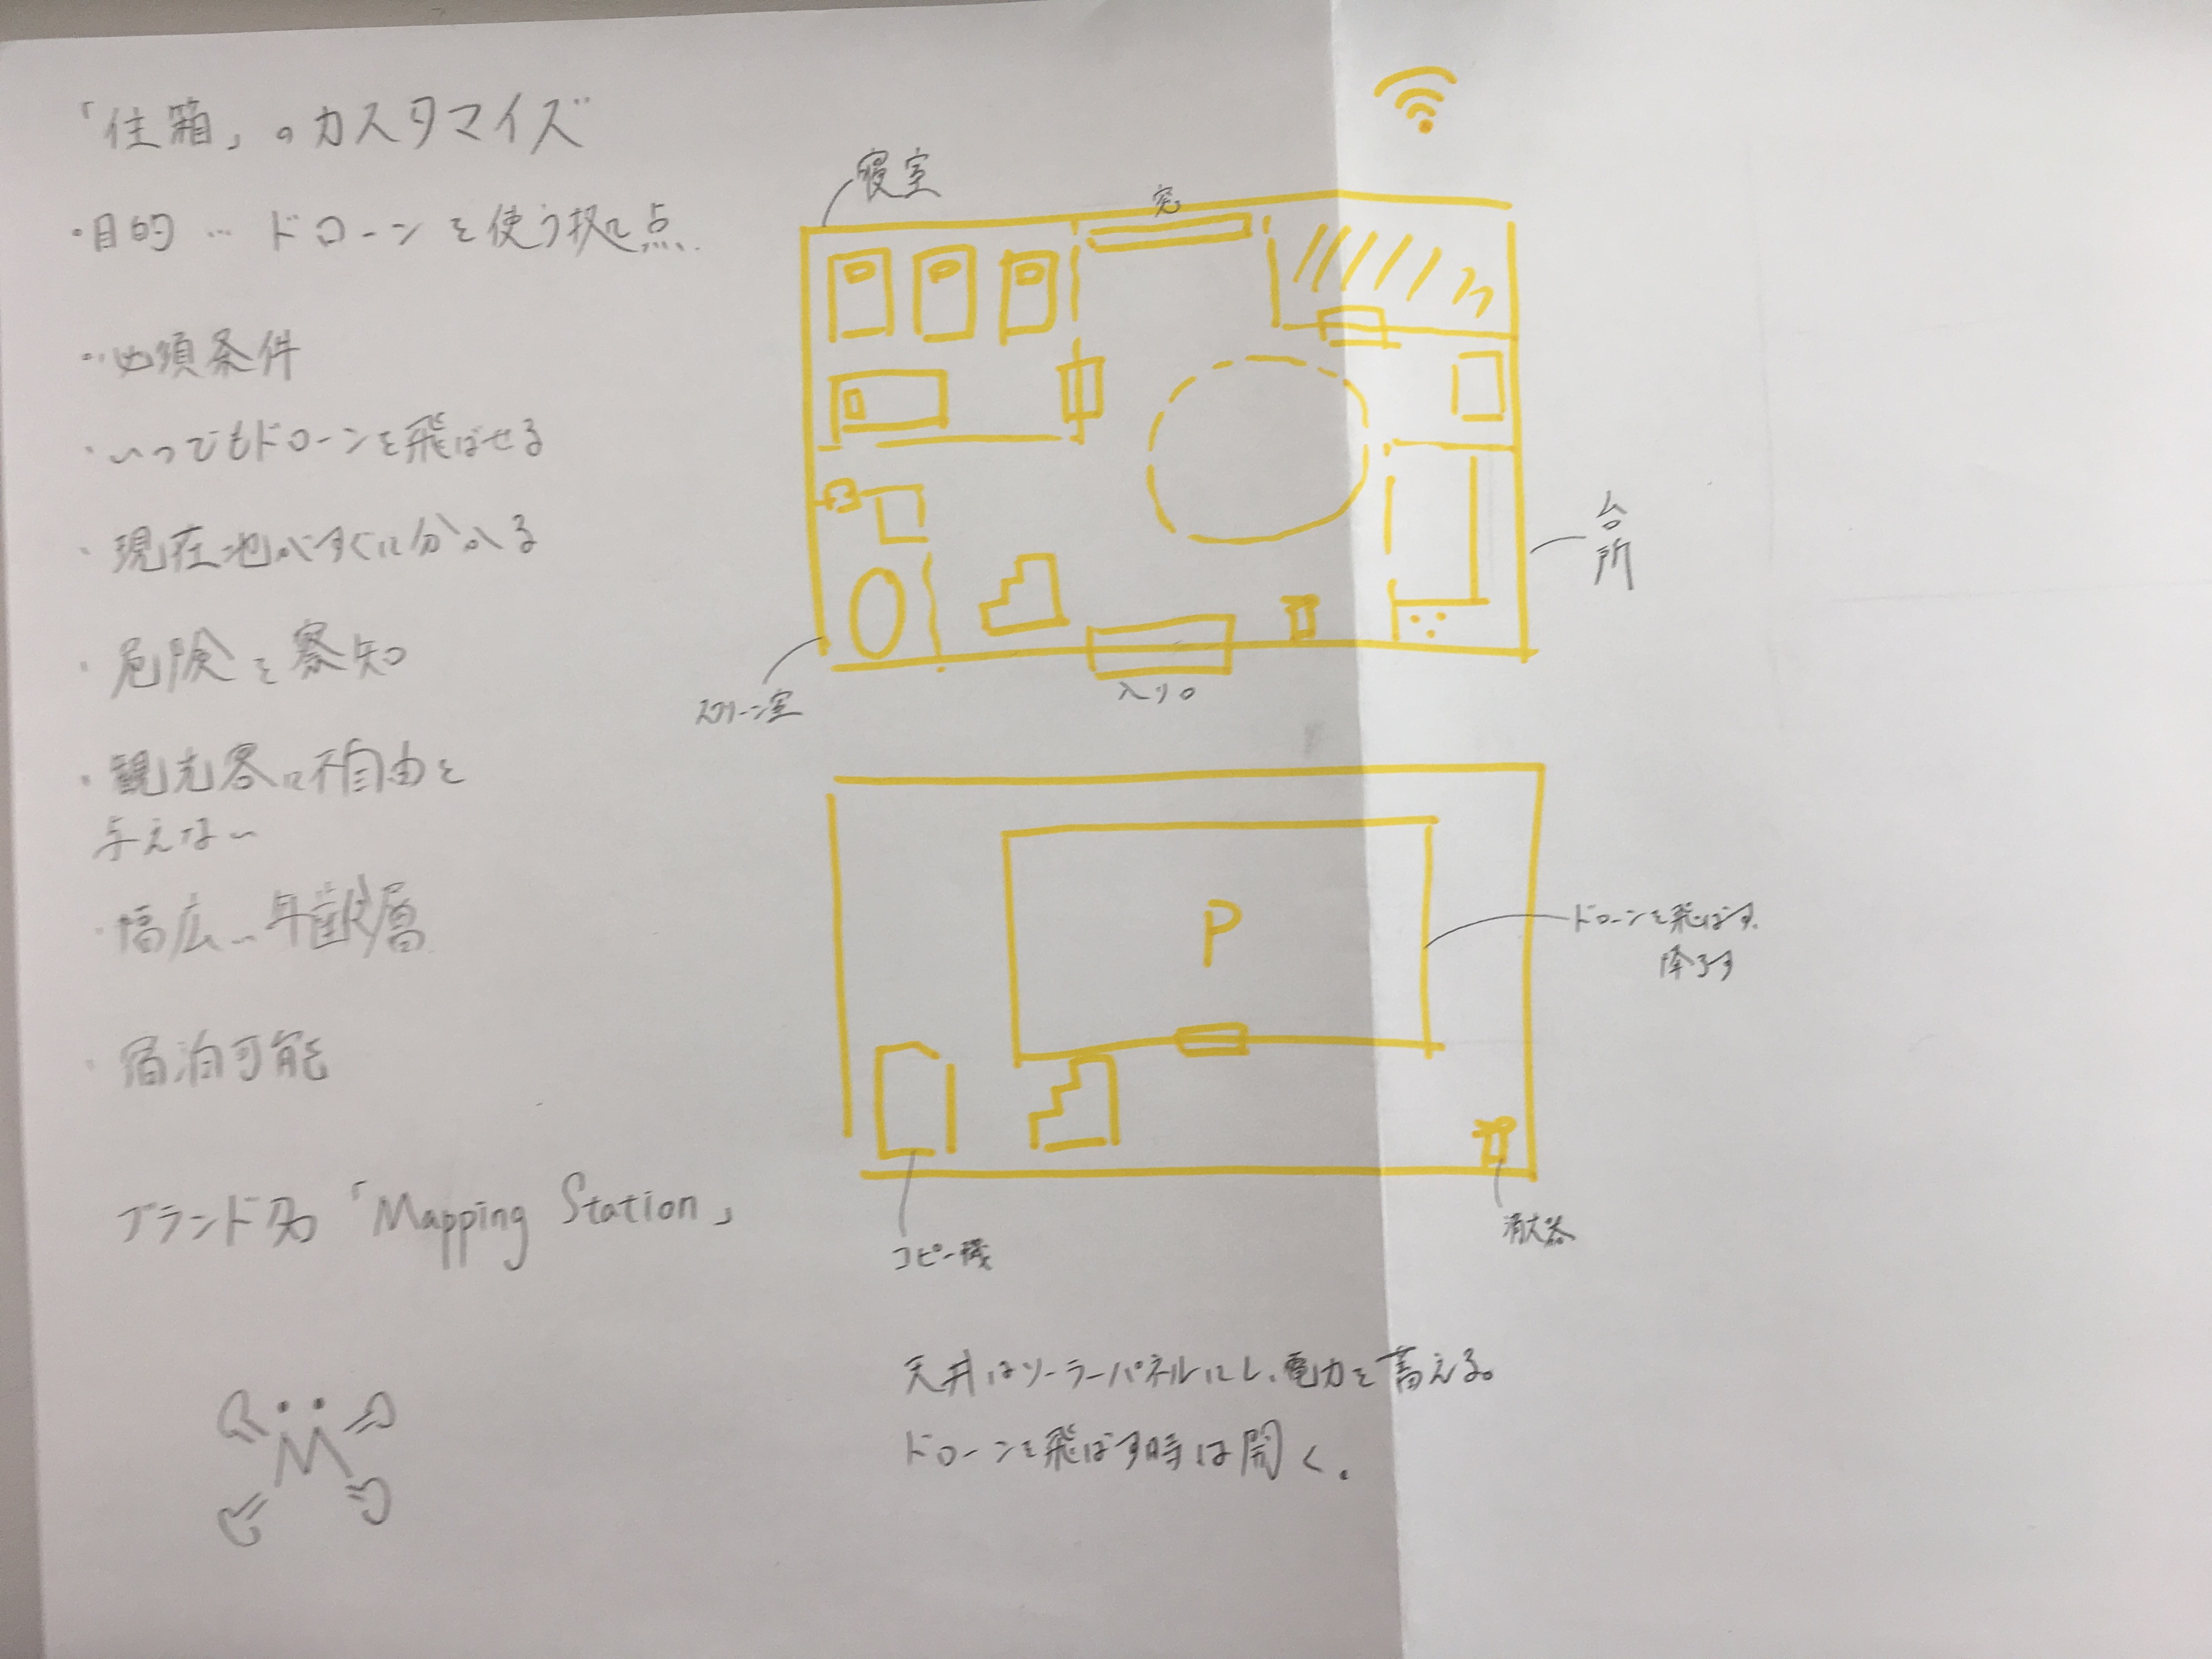 「住箱」のカスタマイズ
・目的 … ドローンを使う拠点
・必須条件
・いつでもドローンを飛ばせる
・現在地がすぐに分かる
・危険を察知
・観光客に不自由を
与えない
・幅広い年齢層
・宿泊可能
ブランド名「Mapping Station」
M
寝室
窓
台所
スクリーン室
入り口
P
ドローンを飛ばす、
降ろす
コピー機
消火器
天井はソーラーパネルにし、電力を蓄える。
ドローンを飛ばす時は開く。